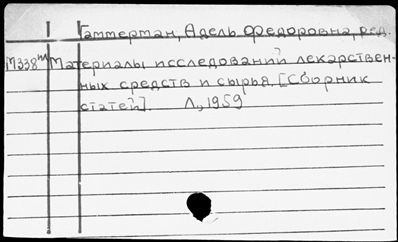 Гаммерман, Адель Федоровна, ред.
П338т Материалы исследований лекарствен-
ных средств и сырья. [Сборник
статей]. Л, 1959